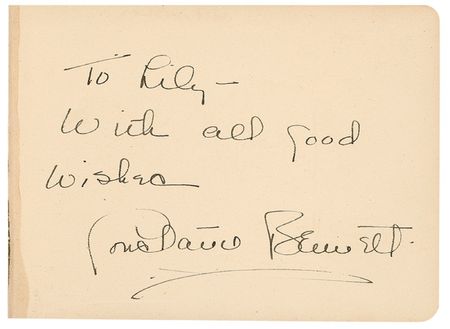 To Lily —
With all good
wishes
Constance Bennett.